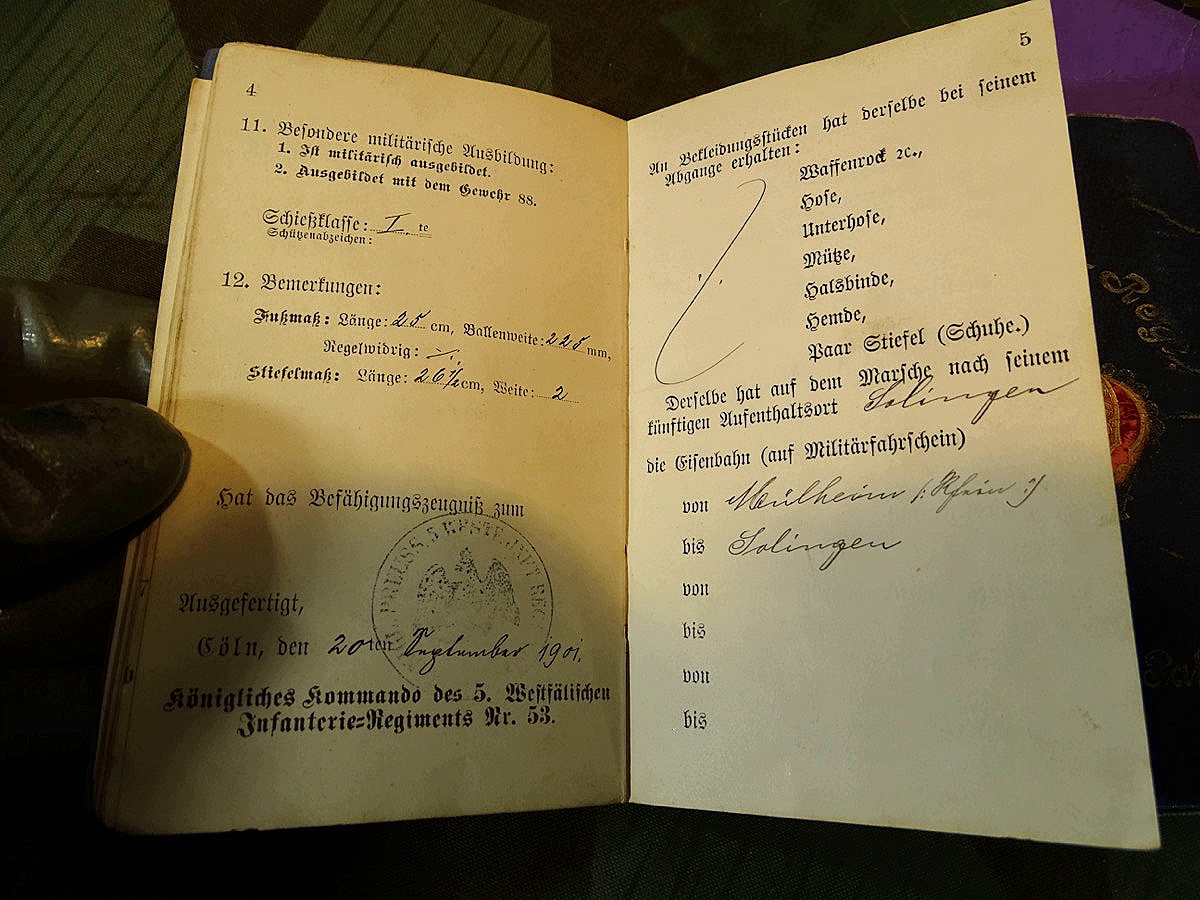 4
11. Besondere militärische Ausbildung:
1. Ist militärisch ausgebildet.
2. Ausgebildet mit dem Gewehr 88.
Schießklasse: I te
Schützenabzeichen:
12. Bemerkungen:
Fußmaß: Länge: 25 cm, Ballenweite: 225 mm,
Regelwidrig: /.
Stiefelmaß: Länge: 26 1/2 cm, Weite: 2
Hat das Befähigungszeugniß zum
PREUSS. 5. WESTF. INFT. REG.
Ausgefertigt,
Cöln, den 20ten September 1901.
Königliches Kommando des 5. Westfälischen
Infanterie=Regiments Nr. 53.
5
An Bekleidungsstücken hat derselbe bei seinem
Abgange erhalten:
Waffenrock ꝛc.,
Hose,
Unterhose,
Mütze,
Halsbinde,
Hemde,
Paar Stiefel (Schuhe.)
Derselbe hat auf dem Marsche nach seinem
künftigen Aufenthaltsort Solingen
die Eisenbahn (auf Militärfahrschein)
von Mülheim (: Rhein :)
bis Solingen
von
bis
von
bis
Reg.